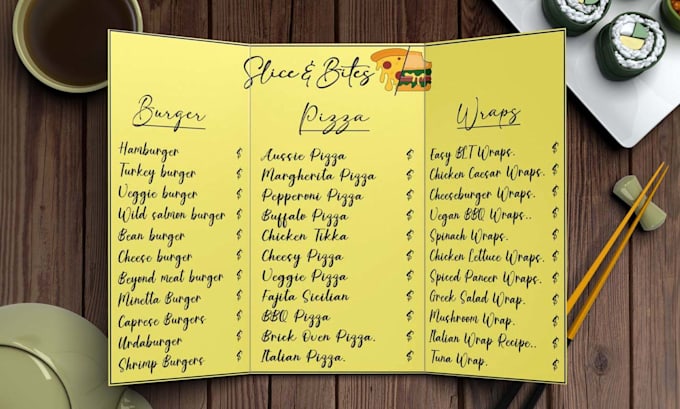 Slice & Bites
Burger
Hamburger $
Turkey burger $
Veggie burger $
Wild salmon burger $
Bean burger $
Cheese burger $
Beyond meat burger $
Minetta Burger $
Caprese Burgers $
Urdaburger $
Shrimp Burgers $
Pizza
Aussie Pizza $
Margherita Pizza $
Pepperoni Pizza $
Buffalo Pizza $
Chicken Tikka $
Cheesy Pizza $
Veggie Pizza $
Fajita Sicilian $
BBQ Pizza $
Brick Oven Pizza. $
Italian Pizza. $
Wraps
Easy BLT Wraps. $
Chicken Caesar Wraps. $
Cheeseburger Wraps. $
Vegan BBQ Wraps.. $
Spinach Wraps. $
Chicken Lettuce Wraps. $
Spiced Paneer Wraps. $
Greek Salad Wrap. $
Mushroom Wrap. $
Italian Wrap Recipe.. $
Tuna Wrap. $